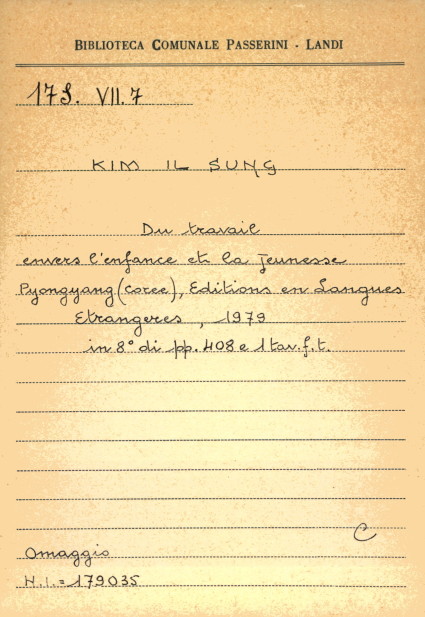 BIBLIOTECA COMUNALE PASSERINI - LANDI
17S. VII.7
KIM IL SUNG
Du travail
envers l'enfance et la jeunesse
Pyongyang (coree), Editions en Langues
Etrangeres, 1979
in 8° di pp. 408 e 1 tav. f. t.
C
Omaggio
N.I.=179035